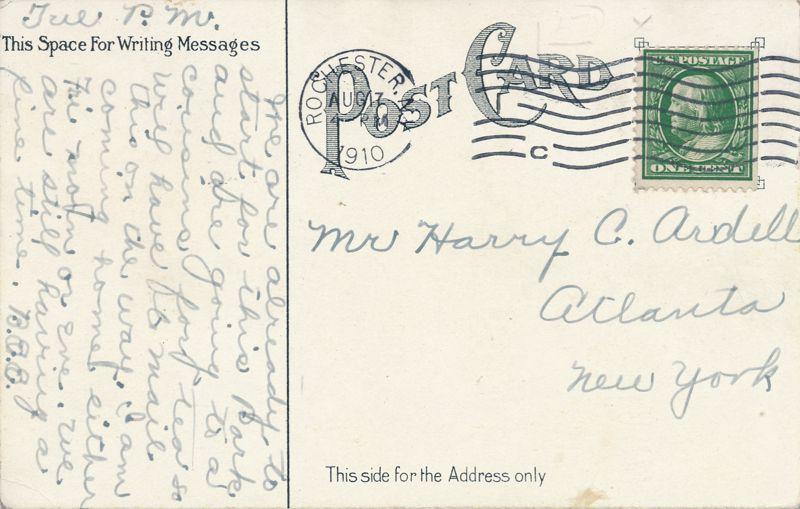 Tue P. M.
This Space For Writing Messages
We are already to
start for this Park
and are going to a
cousins for tea so
will have to mail
this on the way. I am
coming home either
Fri. or eve. We
are still having a
fine time.
POST CARD
ROCHESTER, N.Y.
AUG 17
PM
1910
C
U.S. POSTAGE
ONE CENT
Mr Harry C. Ardell
Atlanta
New York
This side for the Address only